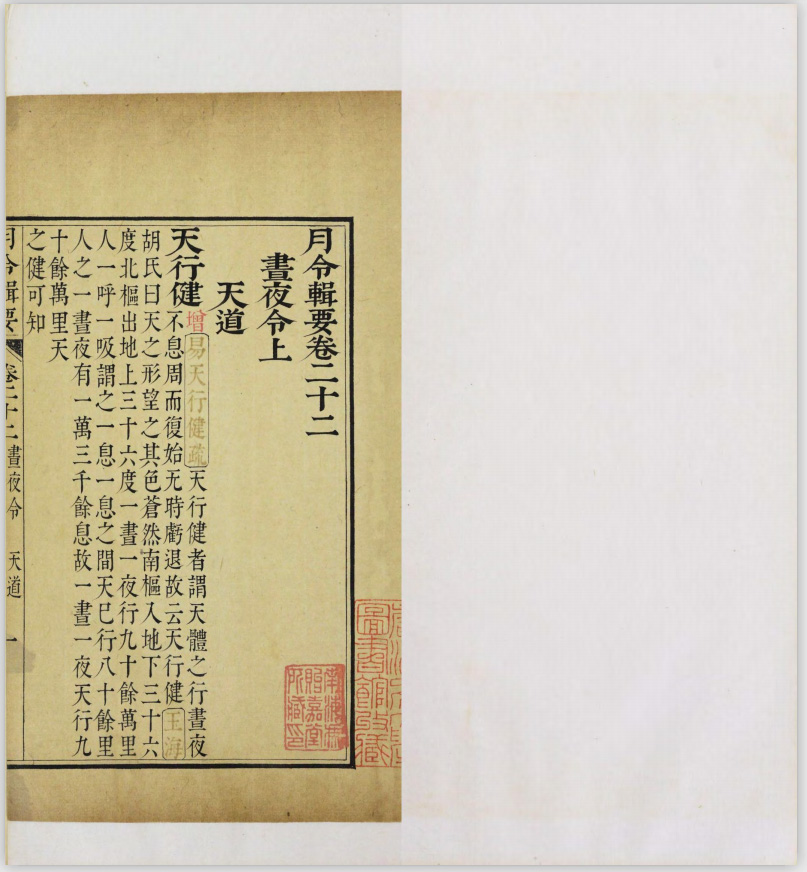 月令輯要卷二十二
晝夜令上
天道
天行健增易天行健疏天行健者謂天體之行晝夜
不息周而復始无時虧退故云天行健玉海
胡氏曰天之形望之其色蒼然南樞入地下三十六
度北樞出地上三十六度一晝一夜行九十餘萬里
人一呼一吸謂之一息一息之間天已行八十餘里
人之一晝夜有一萬三千餘息故一晝一夜天行九
十餘萬里天
之健可知
月令輯要 卷二十二晝夜令 天道 一
圖書館收藏
貽嘉堂
所藏印